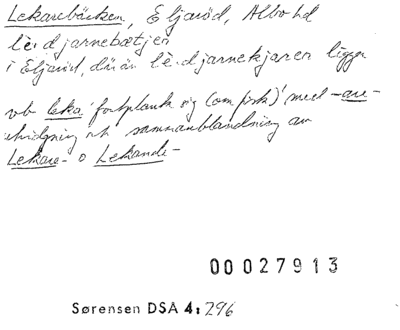 Lekarebäcken, Eljaröd, Albo hd
lè·djarnebætjen
i Eljaröd, där än lè·djarnekjaren ligger
vb leka 'fortplanta sig (om fisk)' med -are-
utvidgning och sammanblandning av
Lekare- o Lekande-
00027913
Sørensen DSA 4: 296